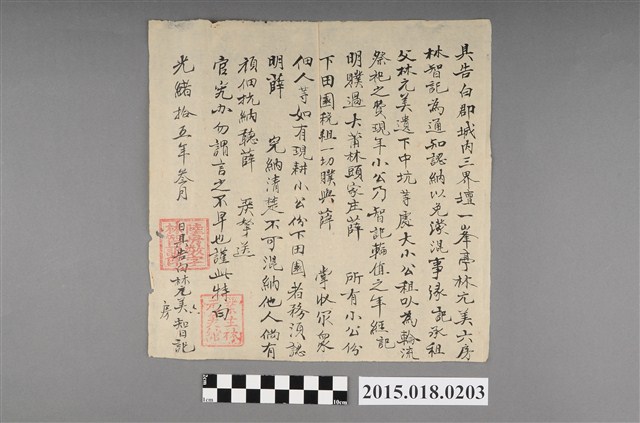 具告白郡城內三界壇一峯亭林元美六房
林智記為通知認納以免混事緣記承租
父林元美遺下中坑等處大小公租以為輪流
祭祀之費現年小公乃智記輪值之年經記
明贌過大莆林頭家庄薛 所有小公份
下田園稅租一切贌與薛 掌收佃眾
佃人等如有現耕小公份下田園者務須認
明薛 完納清楚不可混納他人倘有
頑佃抗納聽薛 送
官究办勿謂言之不早也謹此特白
光緒拾五年叁月 日具告白林元美六房智記
2cm
1cm
10cm
2015.018.0203